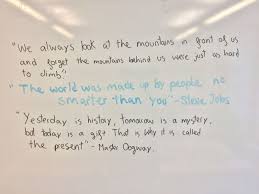 "We always look at the mountains in front of us
and forget the mountains behind us were just as hard
to climb."
"The world was made up by people no
smarter than you" - Steve Jobs
"Yesterday is history, tomorrow is a mystery,
but today is a gift. That is why it is called
the present" - Master Oogway.